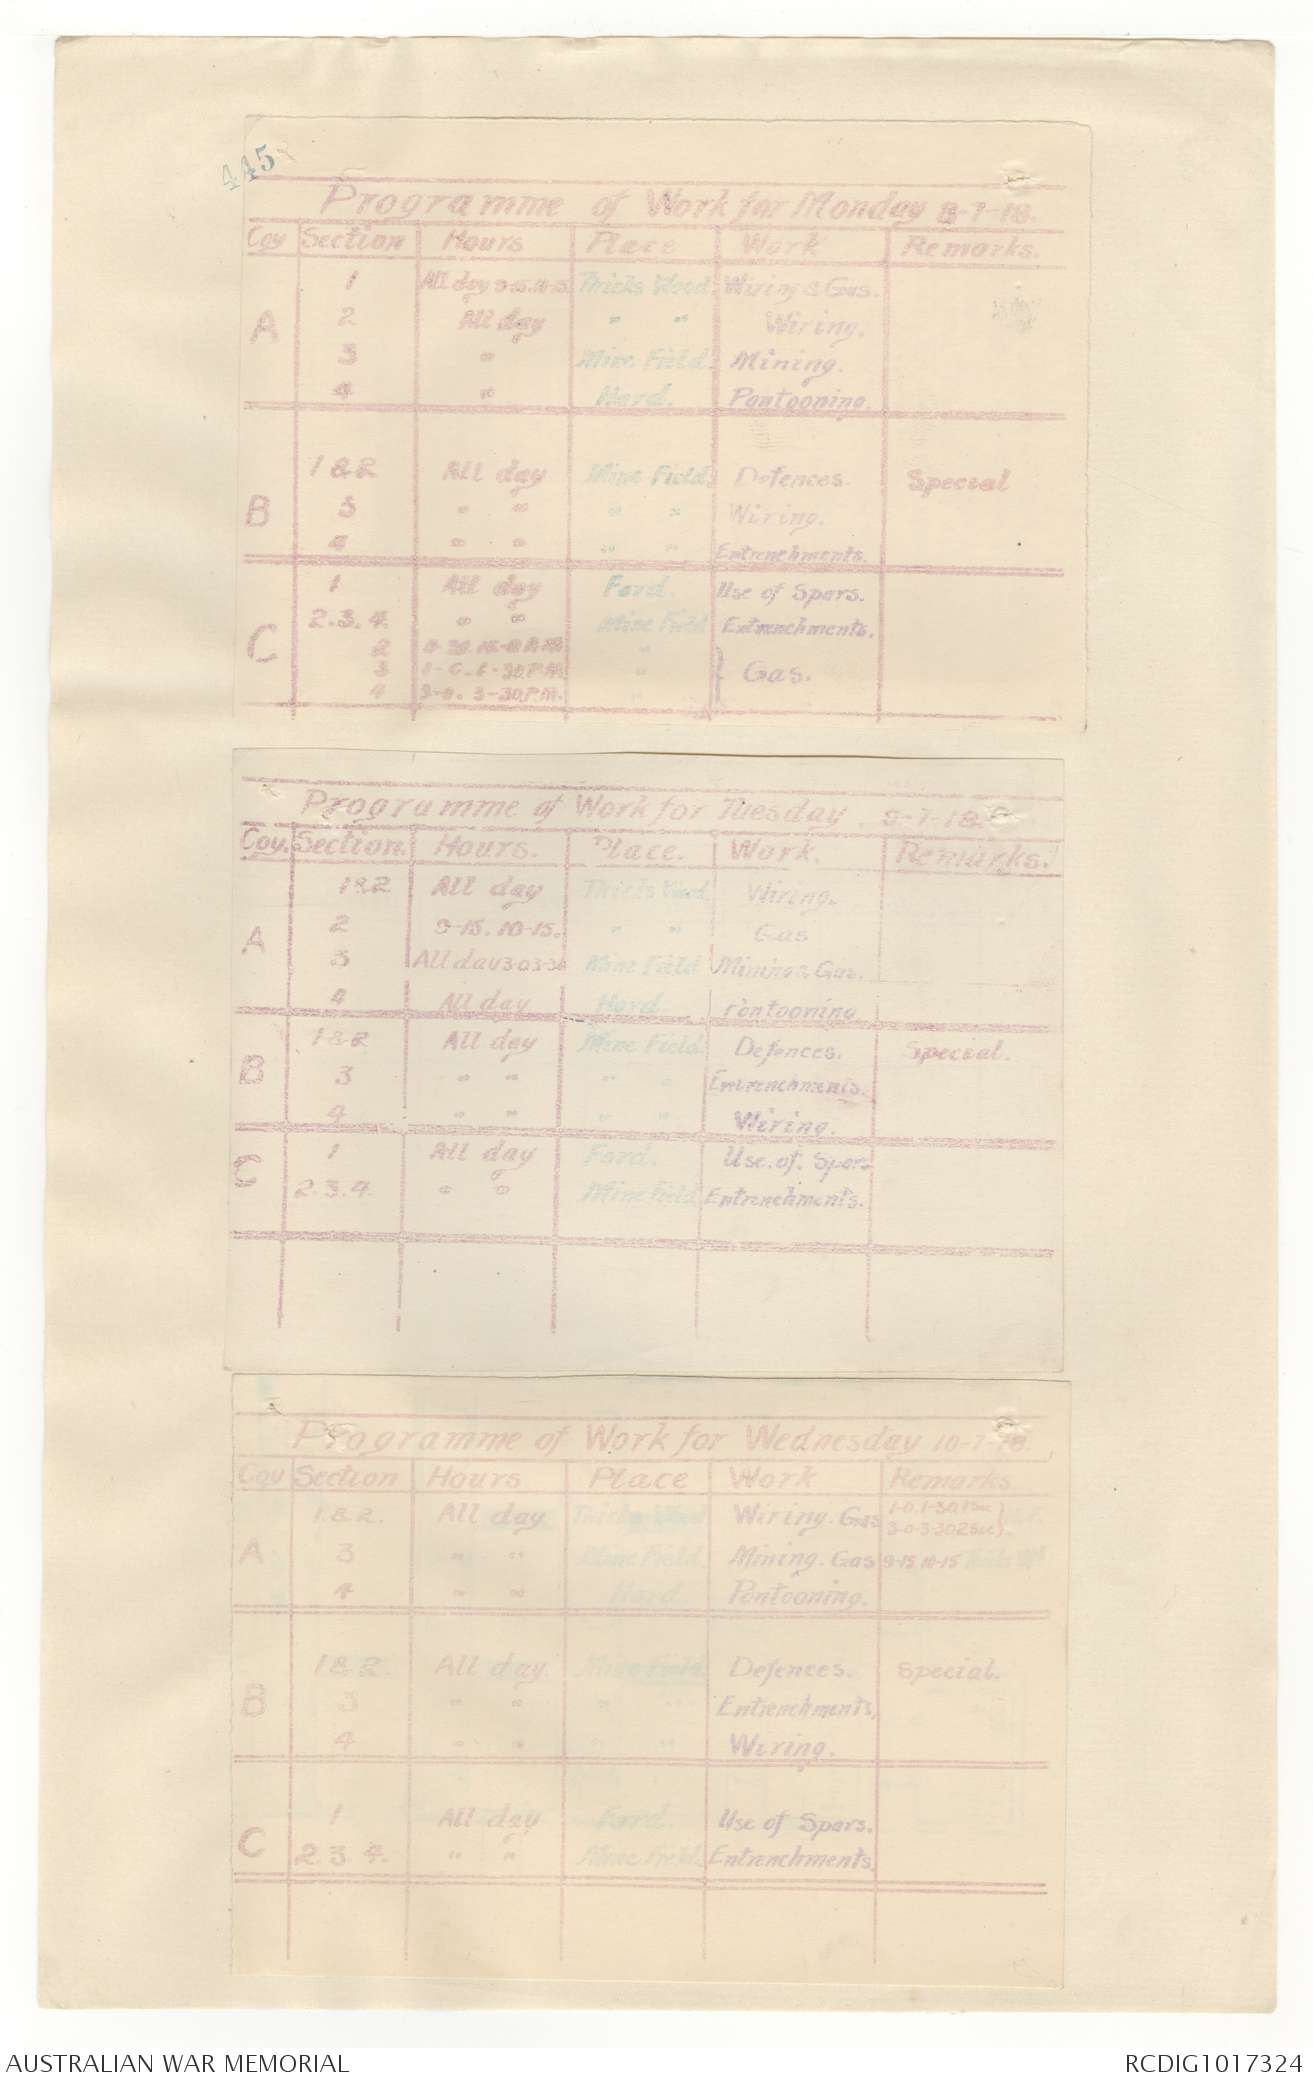 445
Programme of Work for Monday 8-7-18.
Coy Section Hours Place Work Remarks.
1 All day 9-15.10-15 Thicks Wood. Wiring & Gas.
A 2 All day " " Wiring.
3 " Mine Field. Mining.
4 " Hard. Pontooning.
1 & 2 All day Mine Field. Defences. Special
B 3 " " " " Wiring.
4 " " " " Entrenchments.
1 All day Ford. Use of Spars.
2.3.4. " " Mine Field Entrenchments.
C 2 "
3 1-0.1-30.P.M. " } Gas.
4 3-0.3-30.P.M. "
Programme of Work for Tuesday. 9-7-18.
Coy. Section. Hours. Place. Work. Remarks.
1&2 All day Thicks Wood. Wiring.
A 2 9-15.10-15. " " Gas
3 All day 3-0 3-30 Mine Field Mining & Gas.
4 All day Hard Pontooning
1&2 All day Mine Field. Defences. Special.
B 3 " " " " Entrenchments.
4 " " " " Wiring.
C 1 All day Ford. Use.of. Spars
2.3.4. " " Mine Field Entrenchments.
Programme of Work for Wednesday 10-7-18.
Coy Section Hours Place Work Remarks
1 & 2. All day Thicks Wood Wiring. Gas 1-0.1-30.1Sec }
3-0.3-30 2Sec }.
A 3 " " Mine Field. Mining. Gas 9-15.10-15 Thicks Wd
4 " " Hard. Pontooning.
1 & 2. All day. Mine Field. Defences. Special.
B 3 " " " " Entrenchments,
4 " " " " Wiring.
1 All day Ford. Use of Spars.
C 2.3.4. " " Mine Field. Entrenchments.
AUSTRALIAN WAR MEMORIAL RCDIG1017324